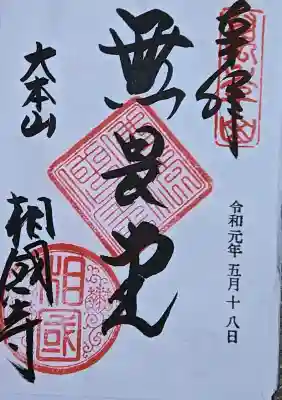 奉拝
令和元年五月十八日
無畏堂
大本山
相國寺
相国